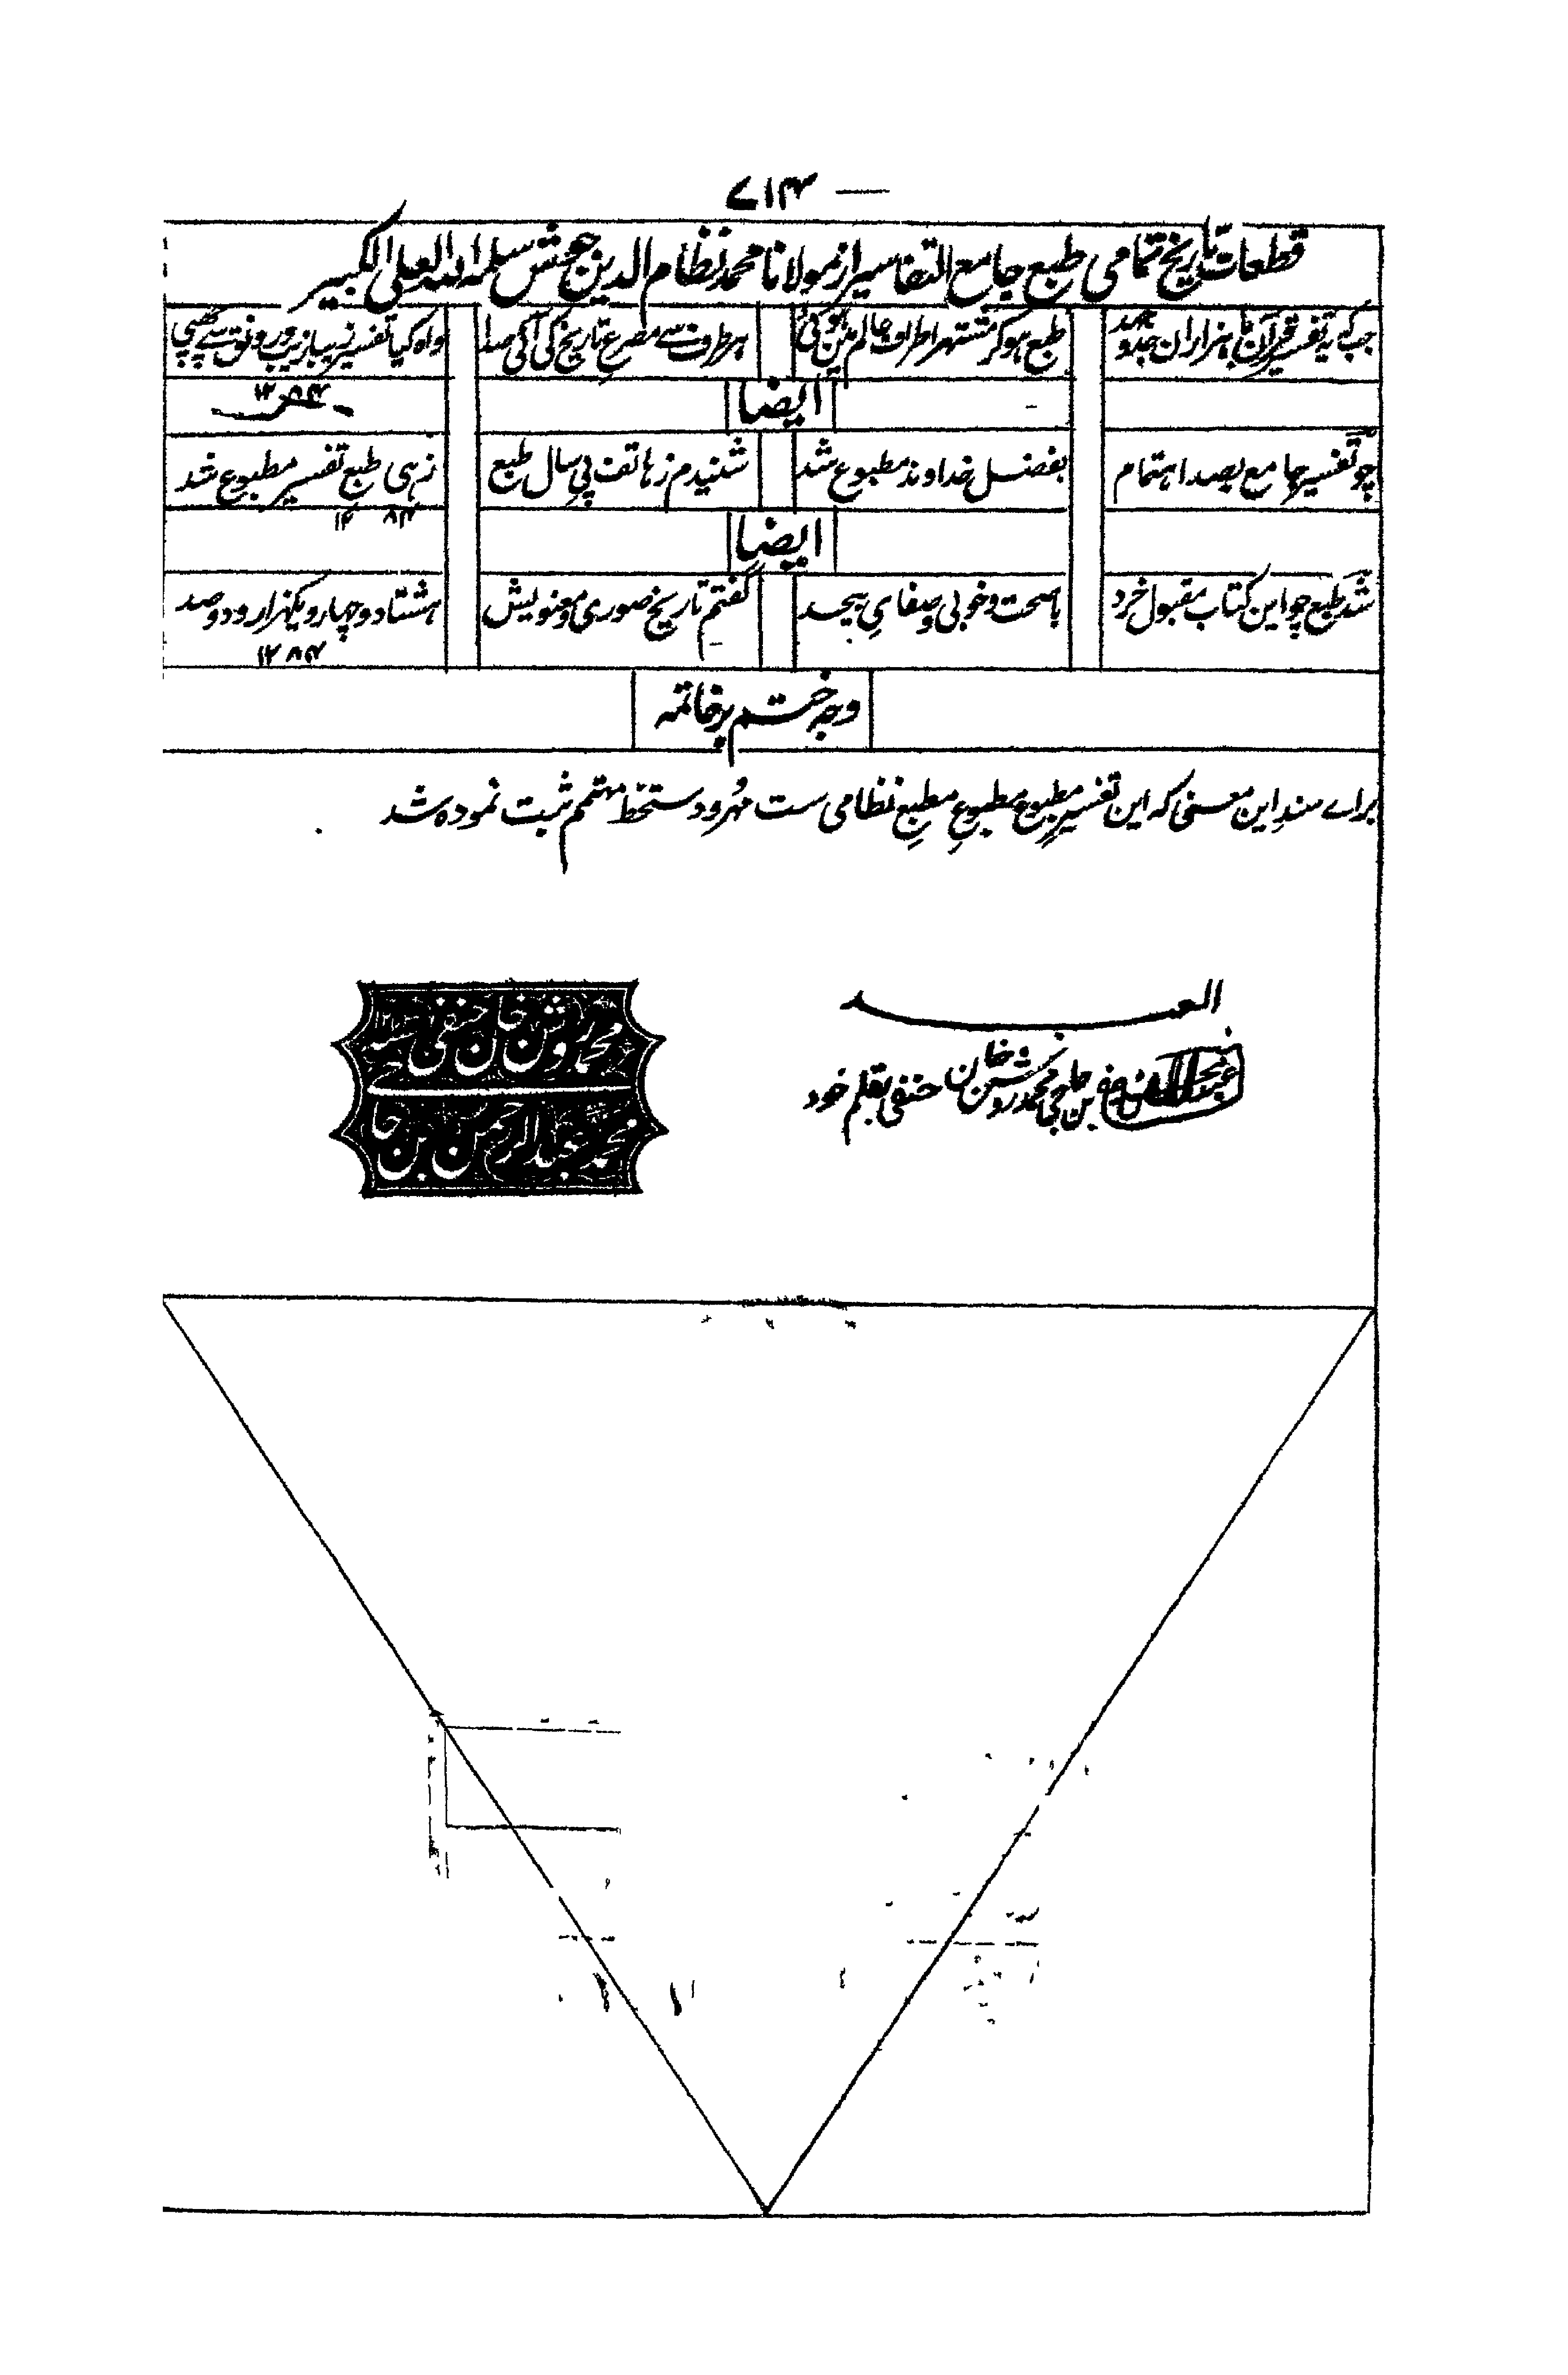 ۷۱۴
قطعات تاریخ تمامی طبع جامع التفاسیر از مولانا محمد نظام الدین سلمہ اللہ العلی الکبیر
جب کہ یہ تفسیر قرآن با ہزاران جد و جہد طبع ہو کر مشتہر اطراف عالم مین ہوئی ہر طرف سے مصرع تاریخ کی آئی صدا واہ کیا تفسیر زیبا زیب و رونق سے چھپی
۱۲۸۴
ایضا
چو تفسیر جامع بصد اہتمام بفضل خداوند مطبوع شد شنیدم ز ہاتف پی سال طبع زہی طبع تفسیر مطبوع شد
۱۲۸۴
ایضا
شد طبع چو این کتاب مقبول خرد با صحت و خوبی و صفای بیحد گفتم تاریخ صوری و معنویش ہشتاد و چہار و یکہزار و دو صد
۱۲۸۴
وجہ ختم بر خاتمہ
براے سند این معنی کہ این تفسیر مطبوع مطبوع مطبع نظامی ست مہر و دستخط مہتمم ثبت نمودہ شد
العبد
محمد عبد الرحمن بن حاجی محمد روشن خان حنفی بقلم خود
محمد روشن خان حنفی
محمد عبد الرحمن بن حاجی